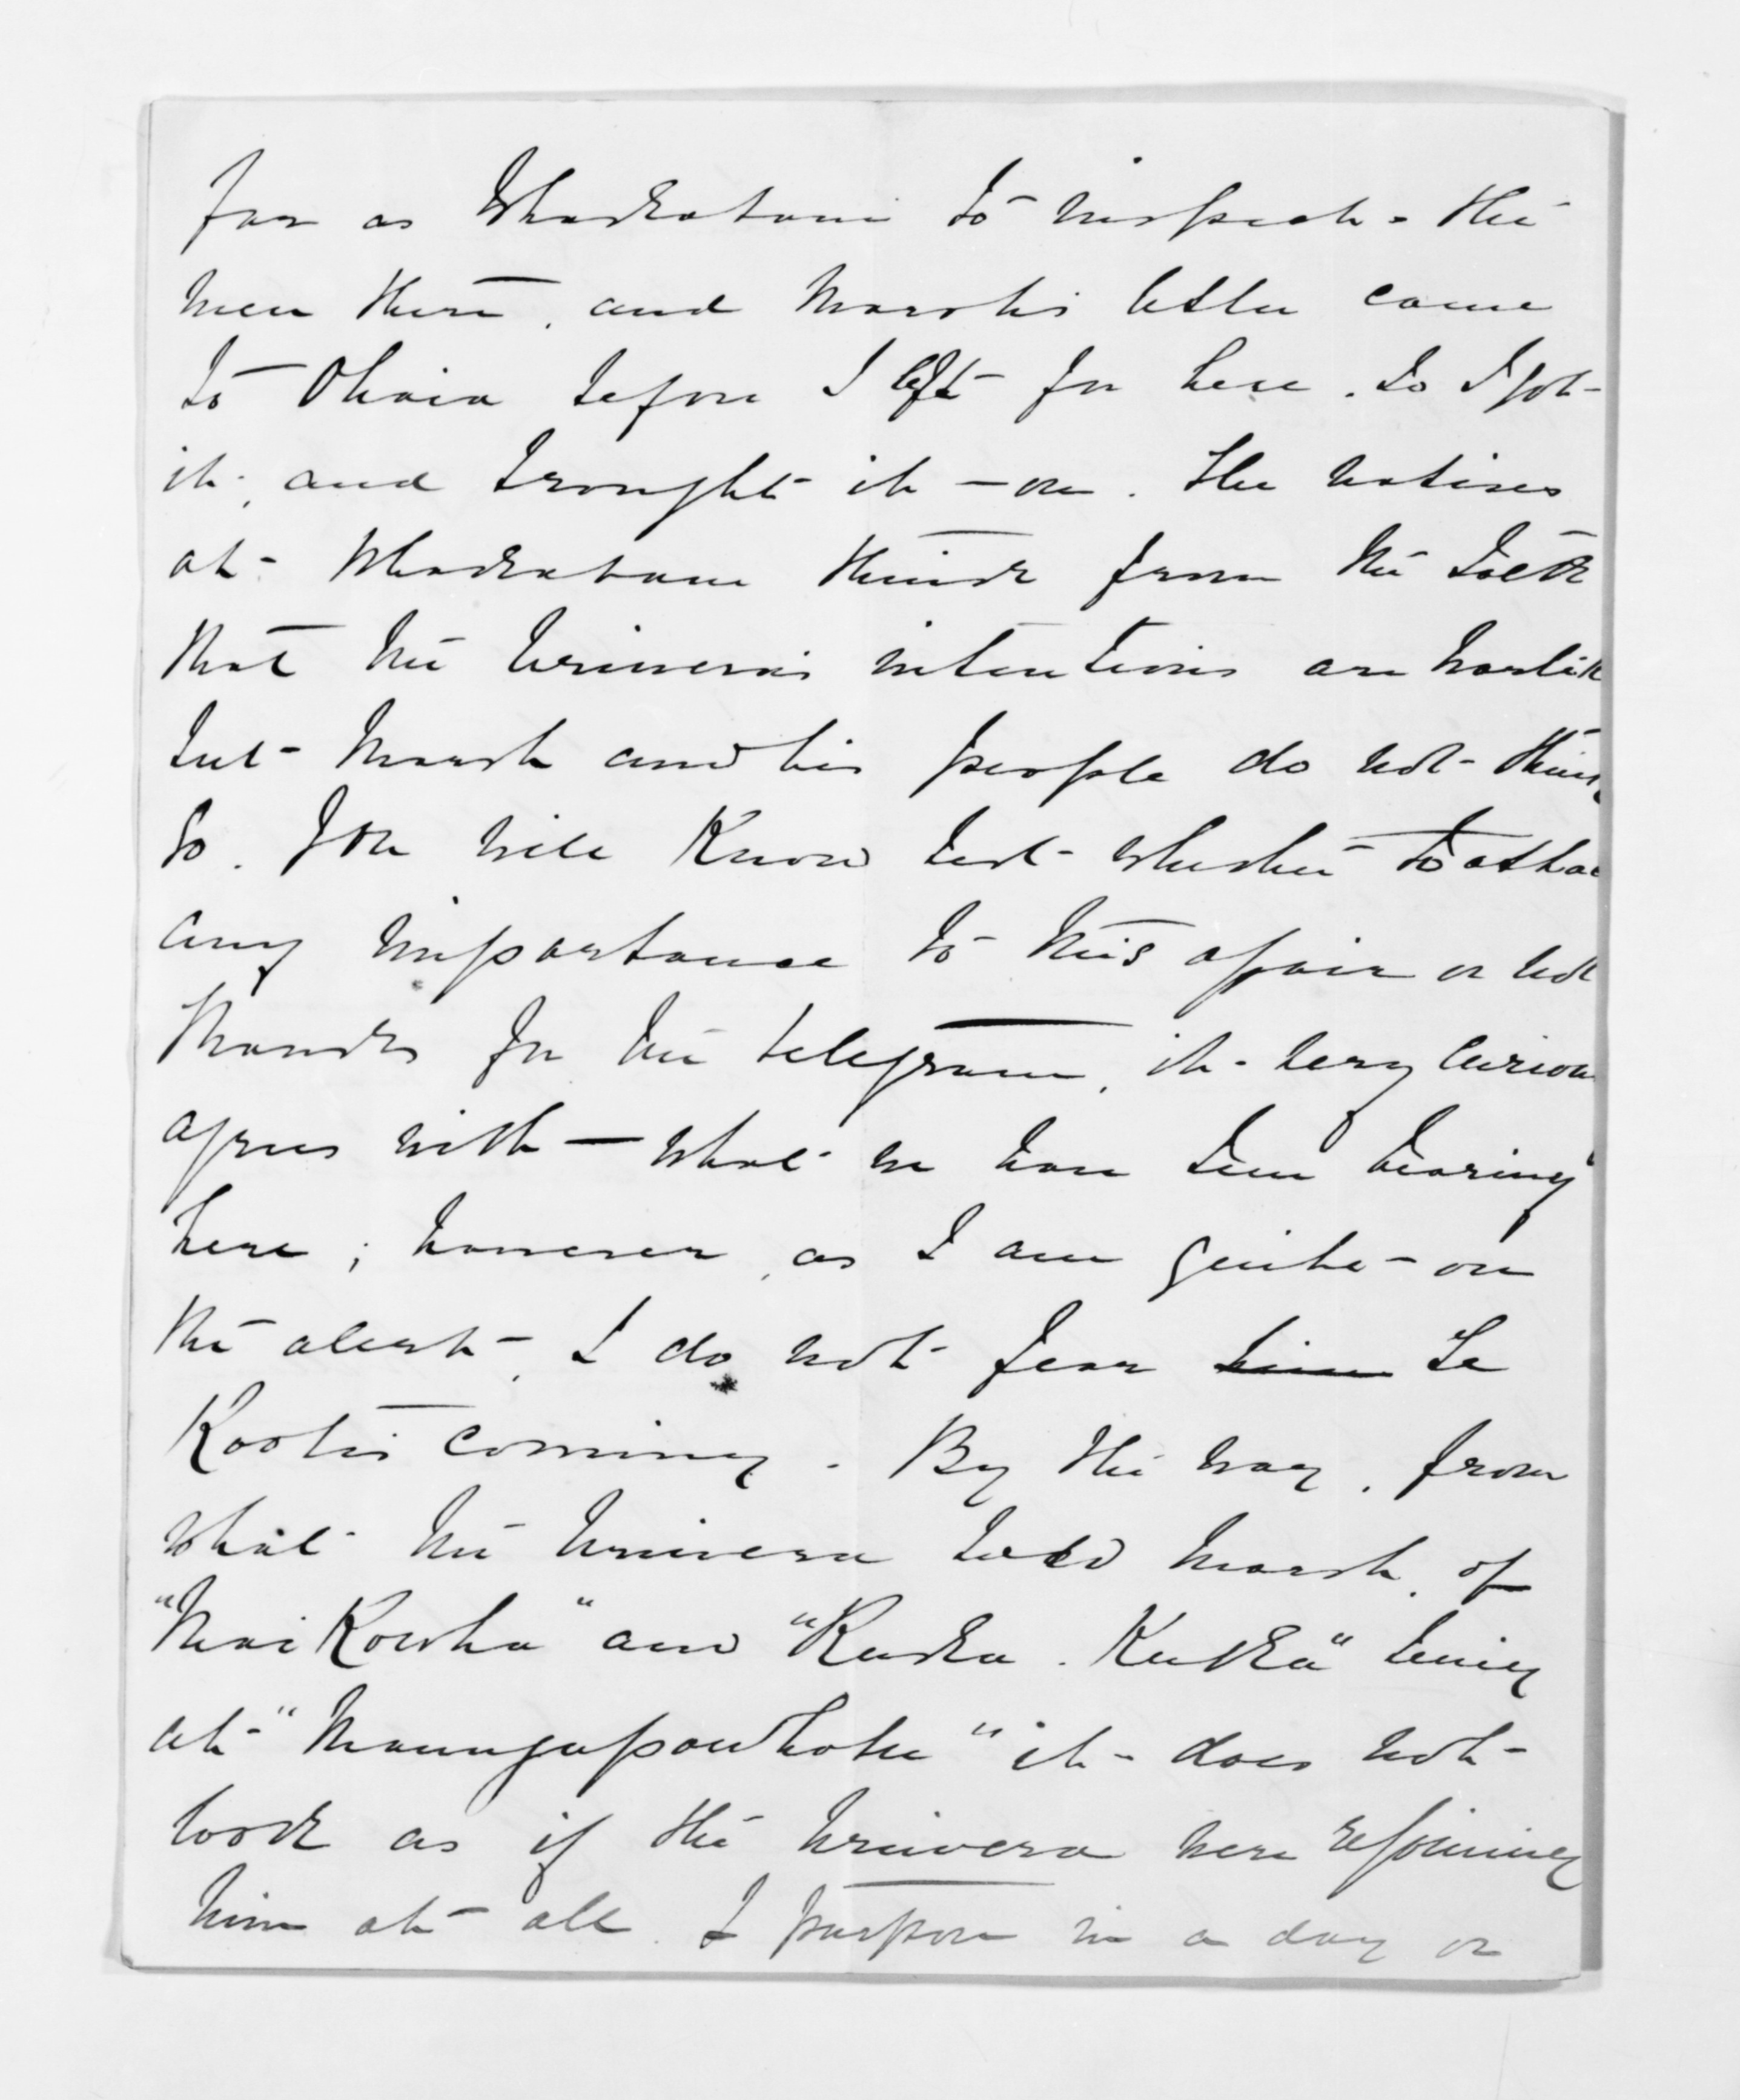 far as Whakatane to inspect the
men there, and Marsh's letter came
to Ohiwa before I left for here. So I got
it, and brought it on. The natives
at Whakatane think from the talk
that the Uriwera's intentions are warlik
but Marsh and his people do not think
so. You will know best whether to attac
any importance to this affair or not
Thanks for the telegram, it very curiou
agrees with what we have been hearing
here; however, as I am quite on
the alert, I do not fear him Te
Kooti's coming. By the way, from
what the Uriwera told Marsh, of
"Kowha" and being
at "Maungapowhatu" it does not
look as if the Uriwera were rejoining
him at all. I purpose in a day or